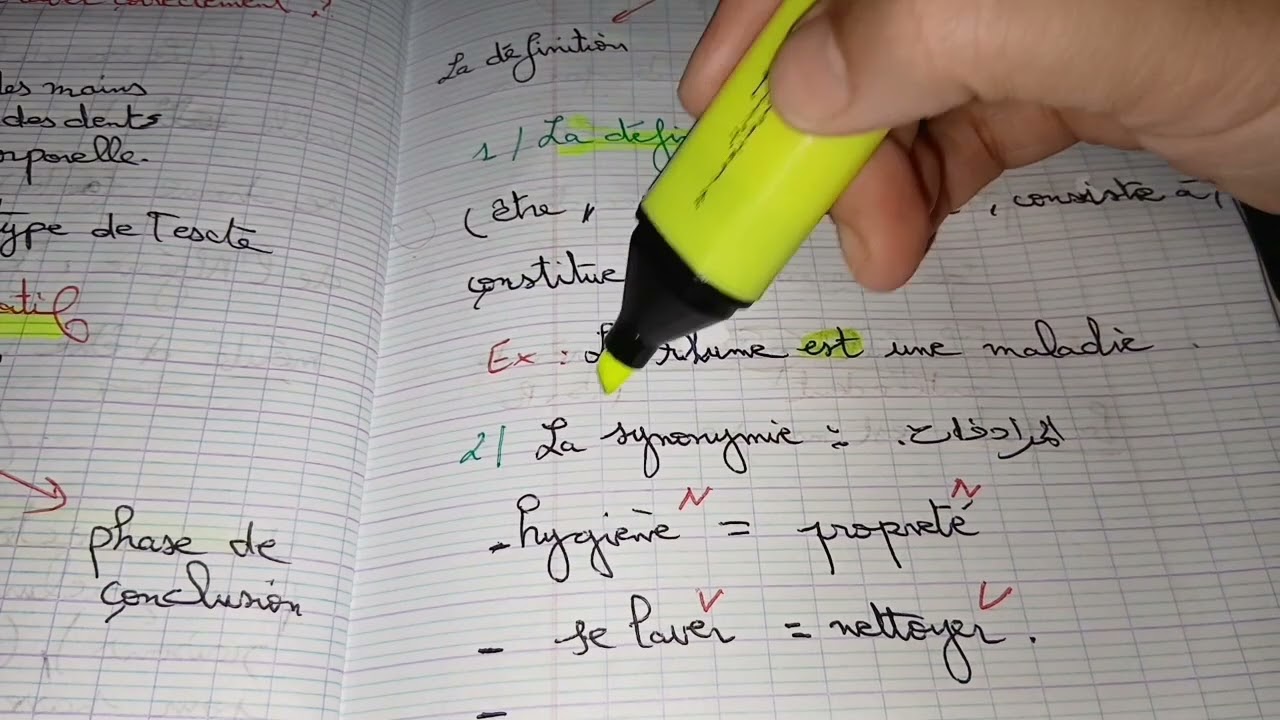 laver correctement ?
des mains
des dents
corporelle.
Type de Texte
phase de
conclusion
La définition
1/ La défi
(être, , consiste à,
constitue
Ex : rhume est une maladie.
2/ La synonymie : المرادفات.
- hygiène N = propreté N
- se laver V = nettoyer V.
-